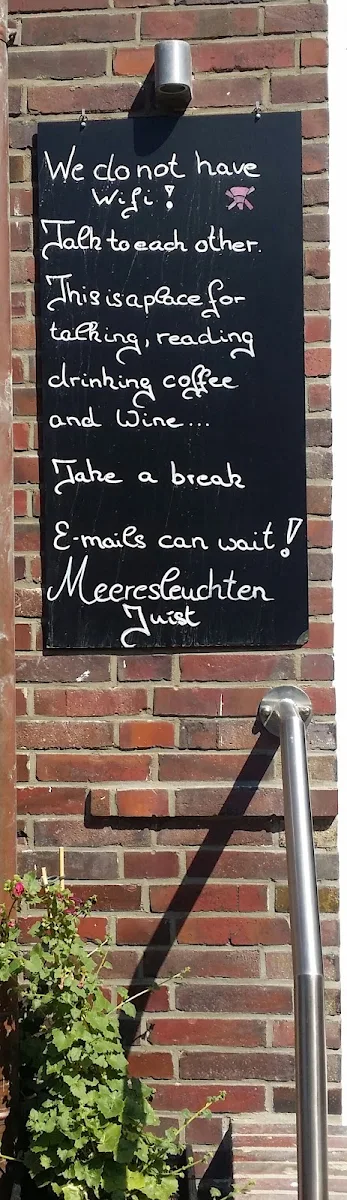 We do not have
Wifi!
Talk to each other.
This is a place for
talking, reading
drinking coffee
and Wine...
Take a break
E-mails can wait!
Meeresleuchten
Juist